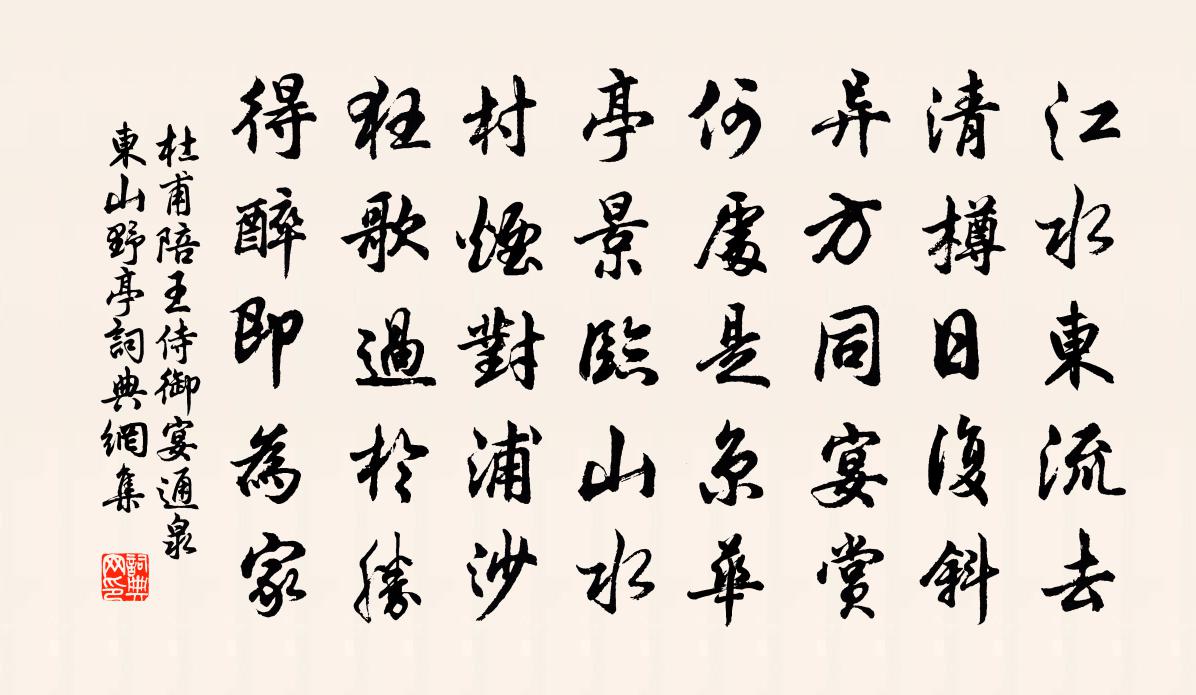 江水東流去
清樽日復斜
异方同宴賞
何處是京華
亭景臨山水
村煙對浦沙
狂歌過於勝
得醉即為家
杜甫陪王侍御宴通泉
東山野亭詞典網集
詞典网印